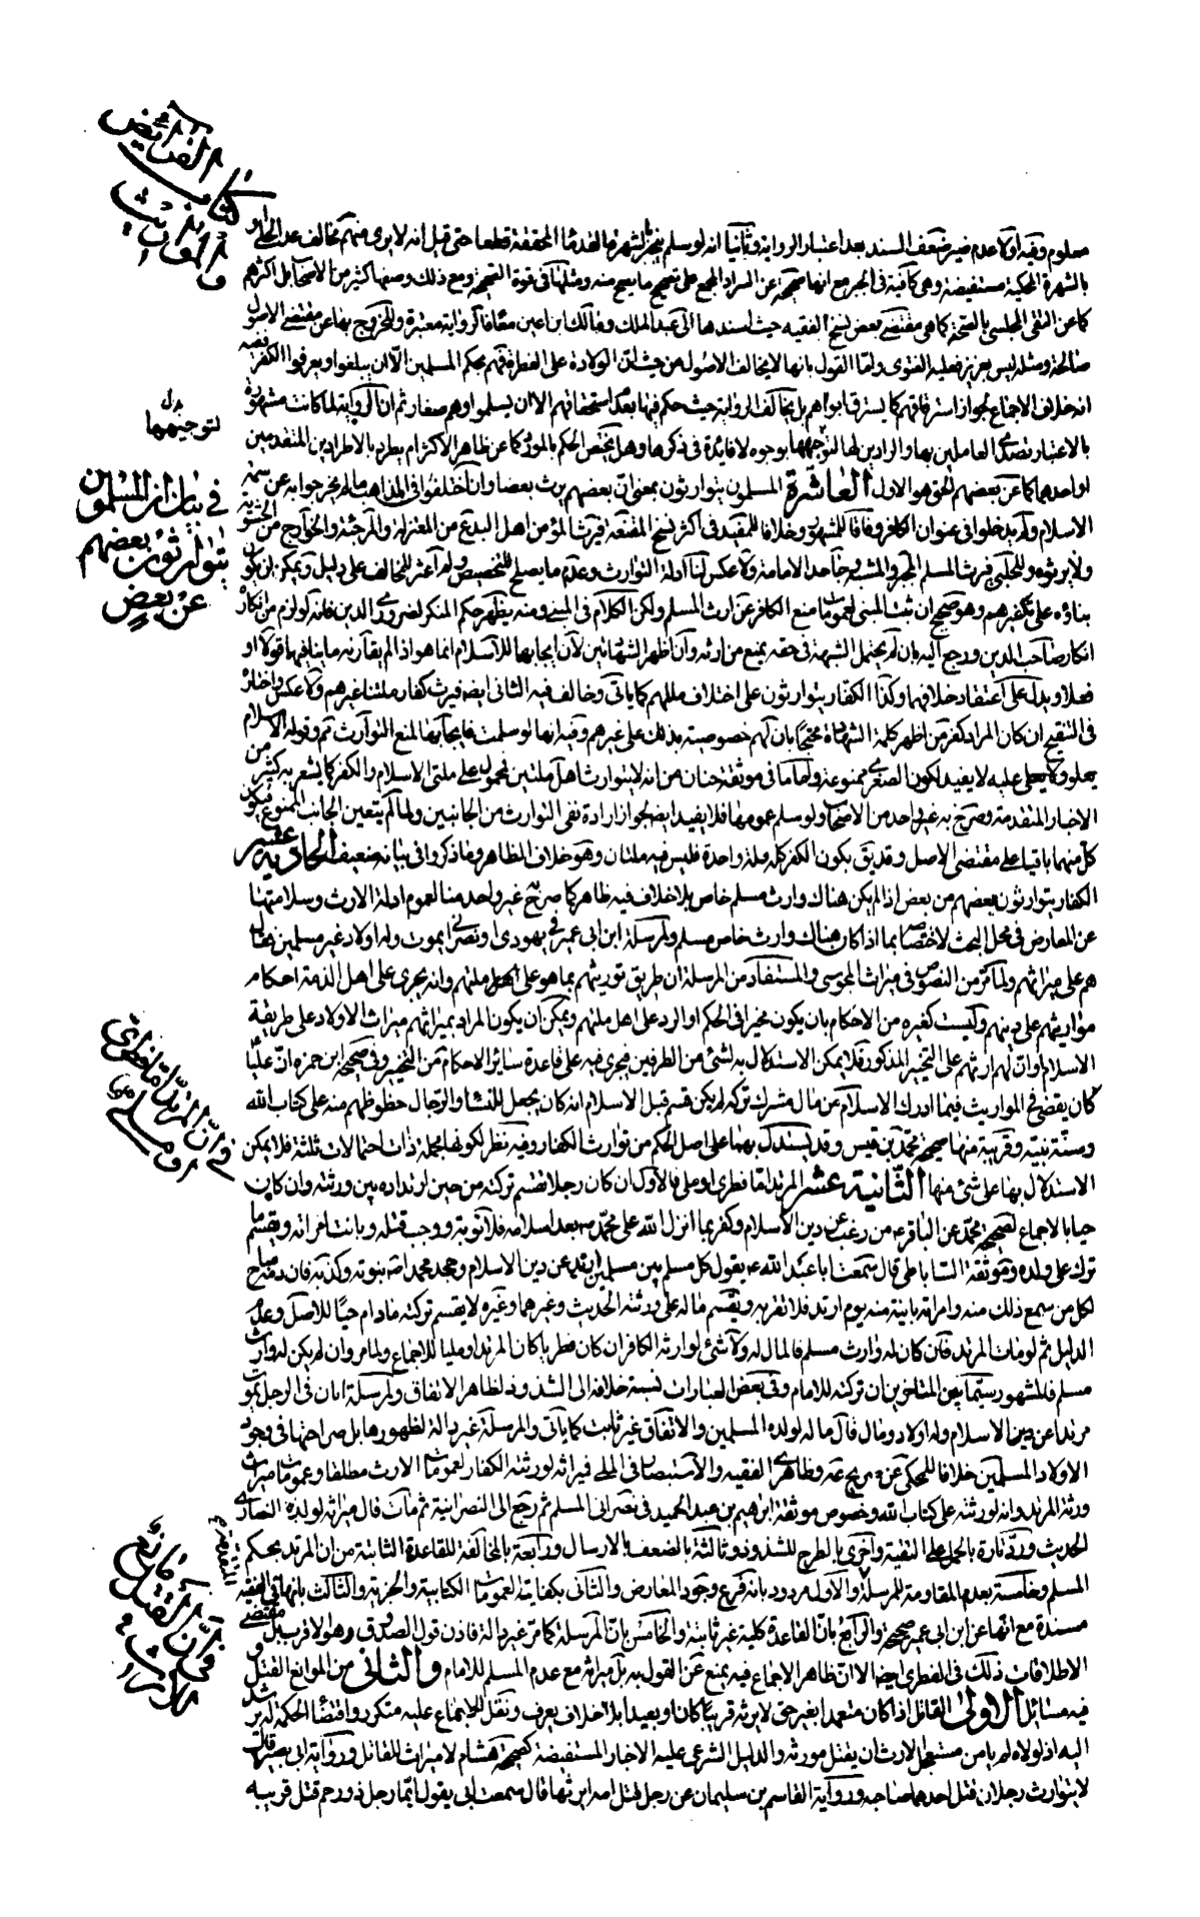 كتاب الفرائض
والمواريث
معلوم وفيه اولا عدم ضير ضعف السند بعد اعتبار الرواية وثانيا انه لو سلم ينجبر بالشهرة القدماء المحققة قطعا حتى قيل انه لا يرى منهم مخالف عدا الحلي و
بالشهرة المحكية مستفيضة وهي كافية في الجبر مع انها صحيحة عن السراد المجمع على تصحيح ما يصح عنه ومثلها في قوة الصحيح ومع ذلك وصفها كثير من الاصحاب بل اكثرهم
كما عن التقي المجلسي بالصحة كما هي مقتضى بعض نسخ الفقيه حيث اسندها الى عبد الملك ومالك ابن اعين معا فالرواية معتبرة وللخروج بها عن مقتضى الاصول
صالحة ومثله ليس بعزيز فعليه الفتوى واما القول بانها لا يخالف الاصول من حيث ان الولادة على الفطرة فهم بحكم المسلمين الا ان يبلغوا ويعرفوا الكفر ففيه
انه خلاف الاجماع لجواز استرقاقهم كما يسترق ابواهم بل يخالف الرواية حيث حكم فيها بعدم استحقاقهم الا ان يسلموا وهم صغار ثم ان الرواية لما كانت مشهورة
بالاعتبار تصدى العاملين بها والرادين لها لتوجيهها بوجوه لا فايدة في ذكرها وهل يختص الحكم بالمورد كما عن ظاهر الاكثر ام يطرد بالاطراد بين المتقدمين
لتوجيهها بدل
او احدهما كما عن بعضهم الحق هو الاول العاشرة المسلمون يتوارثون بمعنى ان بعضهم يرث بعضا وان اختلفوا في المذاهب ما لم يخرجوا به عن سمة
في بيان ان المسلمون
يتوارثون بعضهم
عن بعض
الاسلام ولم يدخلوا في عنوان الكافر وفاقا للمشهور وخلافا للمفيد في اكثر نسخ المقنعة فيرث المؤمن اهل البدع من المعتزلة والمرجئة والخوارج من الحشوية
ولا يرثوه وللحلبي فيرث المسلم المجبر والمشبه وجاحد الامامة ولا عكس لنا ادلة التوارث وعدم ما يصلح للتخصيص ولم اعثر للمخالف على دليل ويمكن ان يكون
بناؤه على تكفيرهم وهو صحيح ان ثبت المبنى لعموم ما منع الكافر عن ارث المسلم ولكن الكلام في المبنى ومنه يظهر حكم المنكر لضروري الدين فانه لو لزم من انكاره
انكار صاحب الدين ورجع اليه بان لم يحتمل الشبهة في حقه يمنع من ارثه وان اظهر الشهادتين لان ايجابها للاسلام انما هو اذا لم يقارنه ما ينافيها قولا او
فعلا ويدل على اعتقاد خلافهما وكذا الكفار يتوارثون على اختلاف مللهم كما ياتي وخالف فيه الثاني ايضا فيرث كفار ملتنا غيرهم ولا عكس واختاره
في التنقيح ان كان المراد كفر من اظهر كلمة الشهادة محتجا بان لهم خصوصية بذلك على غيرهم وفيه انها لو سلمت فايجابها لمنع التوارث ثم وقوله الاسلام
يعلو ولا يعلى عليه لا يفيد لكون الصغرى ممنوعة واما ما في موثقة حنان من انه لا يتوارث اهل ملتين لمحمول على ملتي الاسلام والكفر كما يشعر به كثير من
الاخبار المتقدمة وصرح به غير واحد من الاصحاب ولو سلم عمومها فلا يفيد ايضا لجواز ارادة نفي التوارث من الجانبين ولما لم يتعين الجانب الممنوع فيكون
كل منهما باقيا على مقتضى الاصل وقد يق بكون الكفر كله ملة واحدة فليس فيه ملتان وهو خلاف الظاهر وما ذكروا في بيانه ضعيف الحادية عشر
الكفار يتوارثون بعضهم من بعض اذا لم يكن هناك وارث مسلم خاص بلا خلاف فيه ظاهر كما صرح به غير واحد منا لعموم ادلة الارث وسلامتها
عن المعارض في محل البحث لاختصاصها بما اذا كان هناك وارث خاص مسلم ولمرسلة ابن ابي عمير في يهودي او نصراني يموت وله اولاد غير مسلمين فقال
هم على ميراثهم ولما مر من النصوص في ميراث المجوسي والمستفاد من المرسلة ان طريق توريثهم بما هو على اهل ملتهم وانه يجرى على اهل الذمة احكام
مواريثهم على دينهم وليست كغيره من الاحكام بان يكون مخيرا في الحكم او الرد على اهل ملتهم ويمكن ان يكون المراد بميراثهم ميراث الاولاد على طريقة
الاسلام او ان لهم ارثهم على التخيير المذكور فلا يمكن الاستدلال به لشئ من الطرفين فيجرى فيه على قاعدة ساير الاحكام من التخيير وفي صحيحة ابن حمزه ان عليا
كان يقضي في المواريث فيما ادرك الاسلام عن مال مشرك تركه لم يكن قسم قبل الاسلام انه كان يجعل للنساء والرجال حظوظهم منه على كتاب الله
وسنة نبيه وقريبة منها صحيحة محمد بن قيس وقد يستدل بهما على اصل الحكم من توارث الكفار وفيه نظر لكونها مجملة ذات احتمالات ثلثة فلا يمكن
الاستدلال بها على شئ منها الثانية عشر المرتد اما فطري او ملي فالاول ان كان رجلا تقسم تركته من حين ارتداده بين ورثته وان كان
في ان المرتد اما فطري
او مسلمي
حيا بالاجماع لصحيحة محمد عن الباقر ع من رغب عن دين الاسلام وكفر بما انزل الله على محمد ص بعد اسلامه فلا توبة له ووجب قتله وبانت امراته ويقسم ما
ترك على ولده وموثقة الساباطي قال سمعت ابا عبد الله ع يقول كل مسلم بين مسلمين ارتد عن دين الاسلام وجحد محمدا ص نبوته وكذبه فان دمه مباح
لكل من سمع ذلك منه وامراته باينة منه يوم ارتد فلا تقربه ويقسم ماله على ورثته الحديث وغيرهما وغيره لا يقسم تركته مادام حيا للاصل وعدم
الدليل ثم لو مات المرتد فان كان له وارث مسلم فالمال له ولا شئ لوارثه الكافر ان كان فطريا كان المرتد او مليا للاجماع ولما مر وان لم يكن له وارث
مسلم فالمشهور سيما بين المتاخرين ان تركته للامام وفي بعض العبارات نسبة خلافه الى الشذوذ لظاهر الاتفاق ولمرسلة ابان في الرجل يموت
مرتدا عن دين الاسلام وله اولاد ومال قال ماله لولده المسلمين والاتفاق غير ثابت كما ياتي والمرسلة غير دالة لظهورها بل صراحتها في وجود
الاولاد المسلمين خلافا للمحكي عن وظاهري الفقيه والاستبصار في الملي فميراثه لورثته الكفار لعمومات الارث مطلقا وعمومات ميراث
ورثة المرتد وانه لورثته على كتاب الله وخصوص موثقة ابرهيم بن عبد الحميد في نصراني اسلم ثم رجع الى النصرانية ثم مات قال ميراثه لولده النصارى
الحديث ورد تارة بالحمل على التقية واخرى بالطرح للشذوذ وثالثة بالضعف بالارسال ورابعة بالمخالفة للقاعدة الثابتة من ان المرتد بحكم
المسلم وخامسة بعدم المقاومة للمرسلة والاول مردود بانه فرع وجود المعارض والثاني بكفايته لعمومات الكتابية والخبرية والثالث بانها في الفقيه
مسندة مع انها عن ابن ابي عمير صحيحة والرابع بان القاعدة كلية غير ثابتة والخامس بان المرسلة كما مر غير دالة فاذن قول الصدوق وهو لا قريب بل مقتضى
الاطلاقات ذلك في الفطري ايضا الا ان ظاهر الاجماع فيه يمنع عن القول به بل ميراثه مع عدم المسلم للامام والثاني من الموانع القتل و
في ان القتل مانع
الارث
فيه مسائل الاولى القاتل اذا كان متعمدا بغير حق لا يرثه قريبا كان او بعيدا بلا خلاف يعرف ونقل للاجماع عليه متكرر واقتضاء الحكمة له يرشد
اليه اذ لولاه لم يامن مستعجل الارث ان يقتل مورثه والدليل الشرعي عليه الاخبار المستفيضة كصحيحة هشام لا ميراث للقاتل ورواية ابي بصير قال
لا يتوارث رجلان قتل احدهما صاحبه ورواية القاسم بن سليمان عن رجل قتل امه ايرثها قال سمعت ابي يقول ايما رجل ذو رحم قتل قريبه